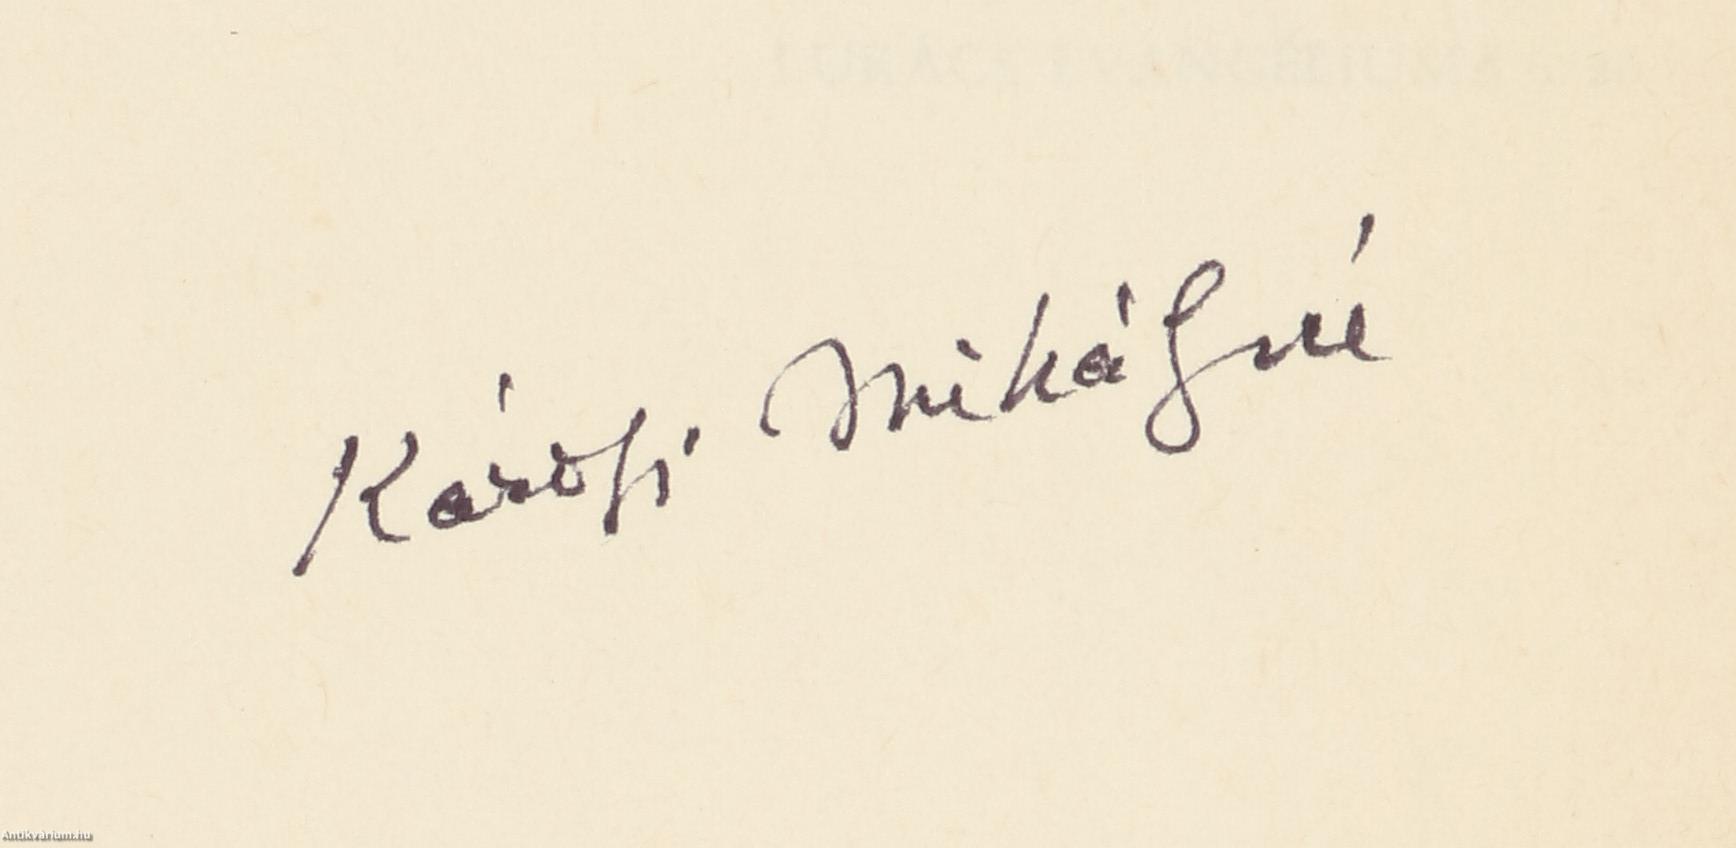 LUKÁCS EVANGÉLIUMA
Károlyi Mihályné
Antikvárium.hu